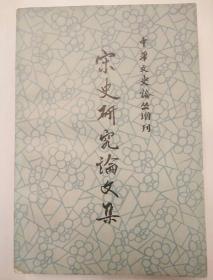 中华文史论丛增刊
宋史研究論文集